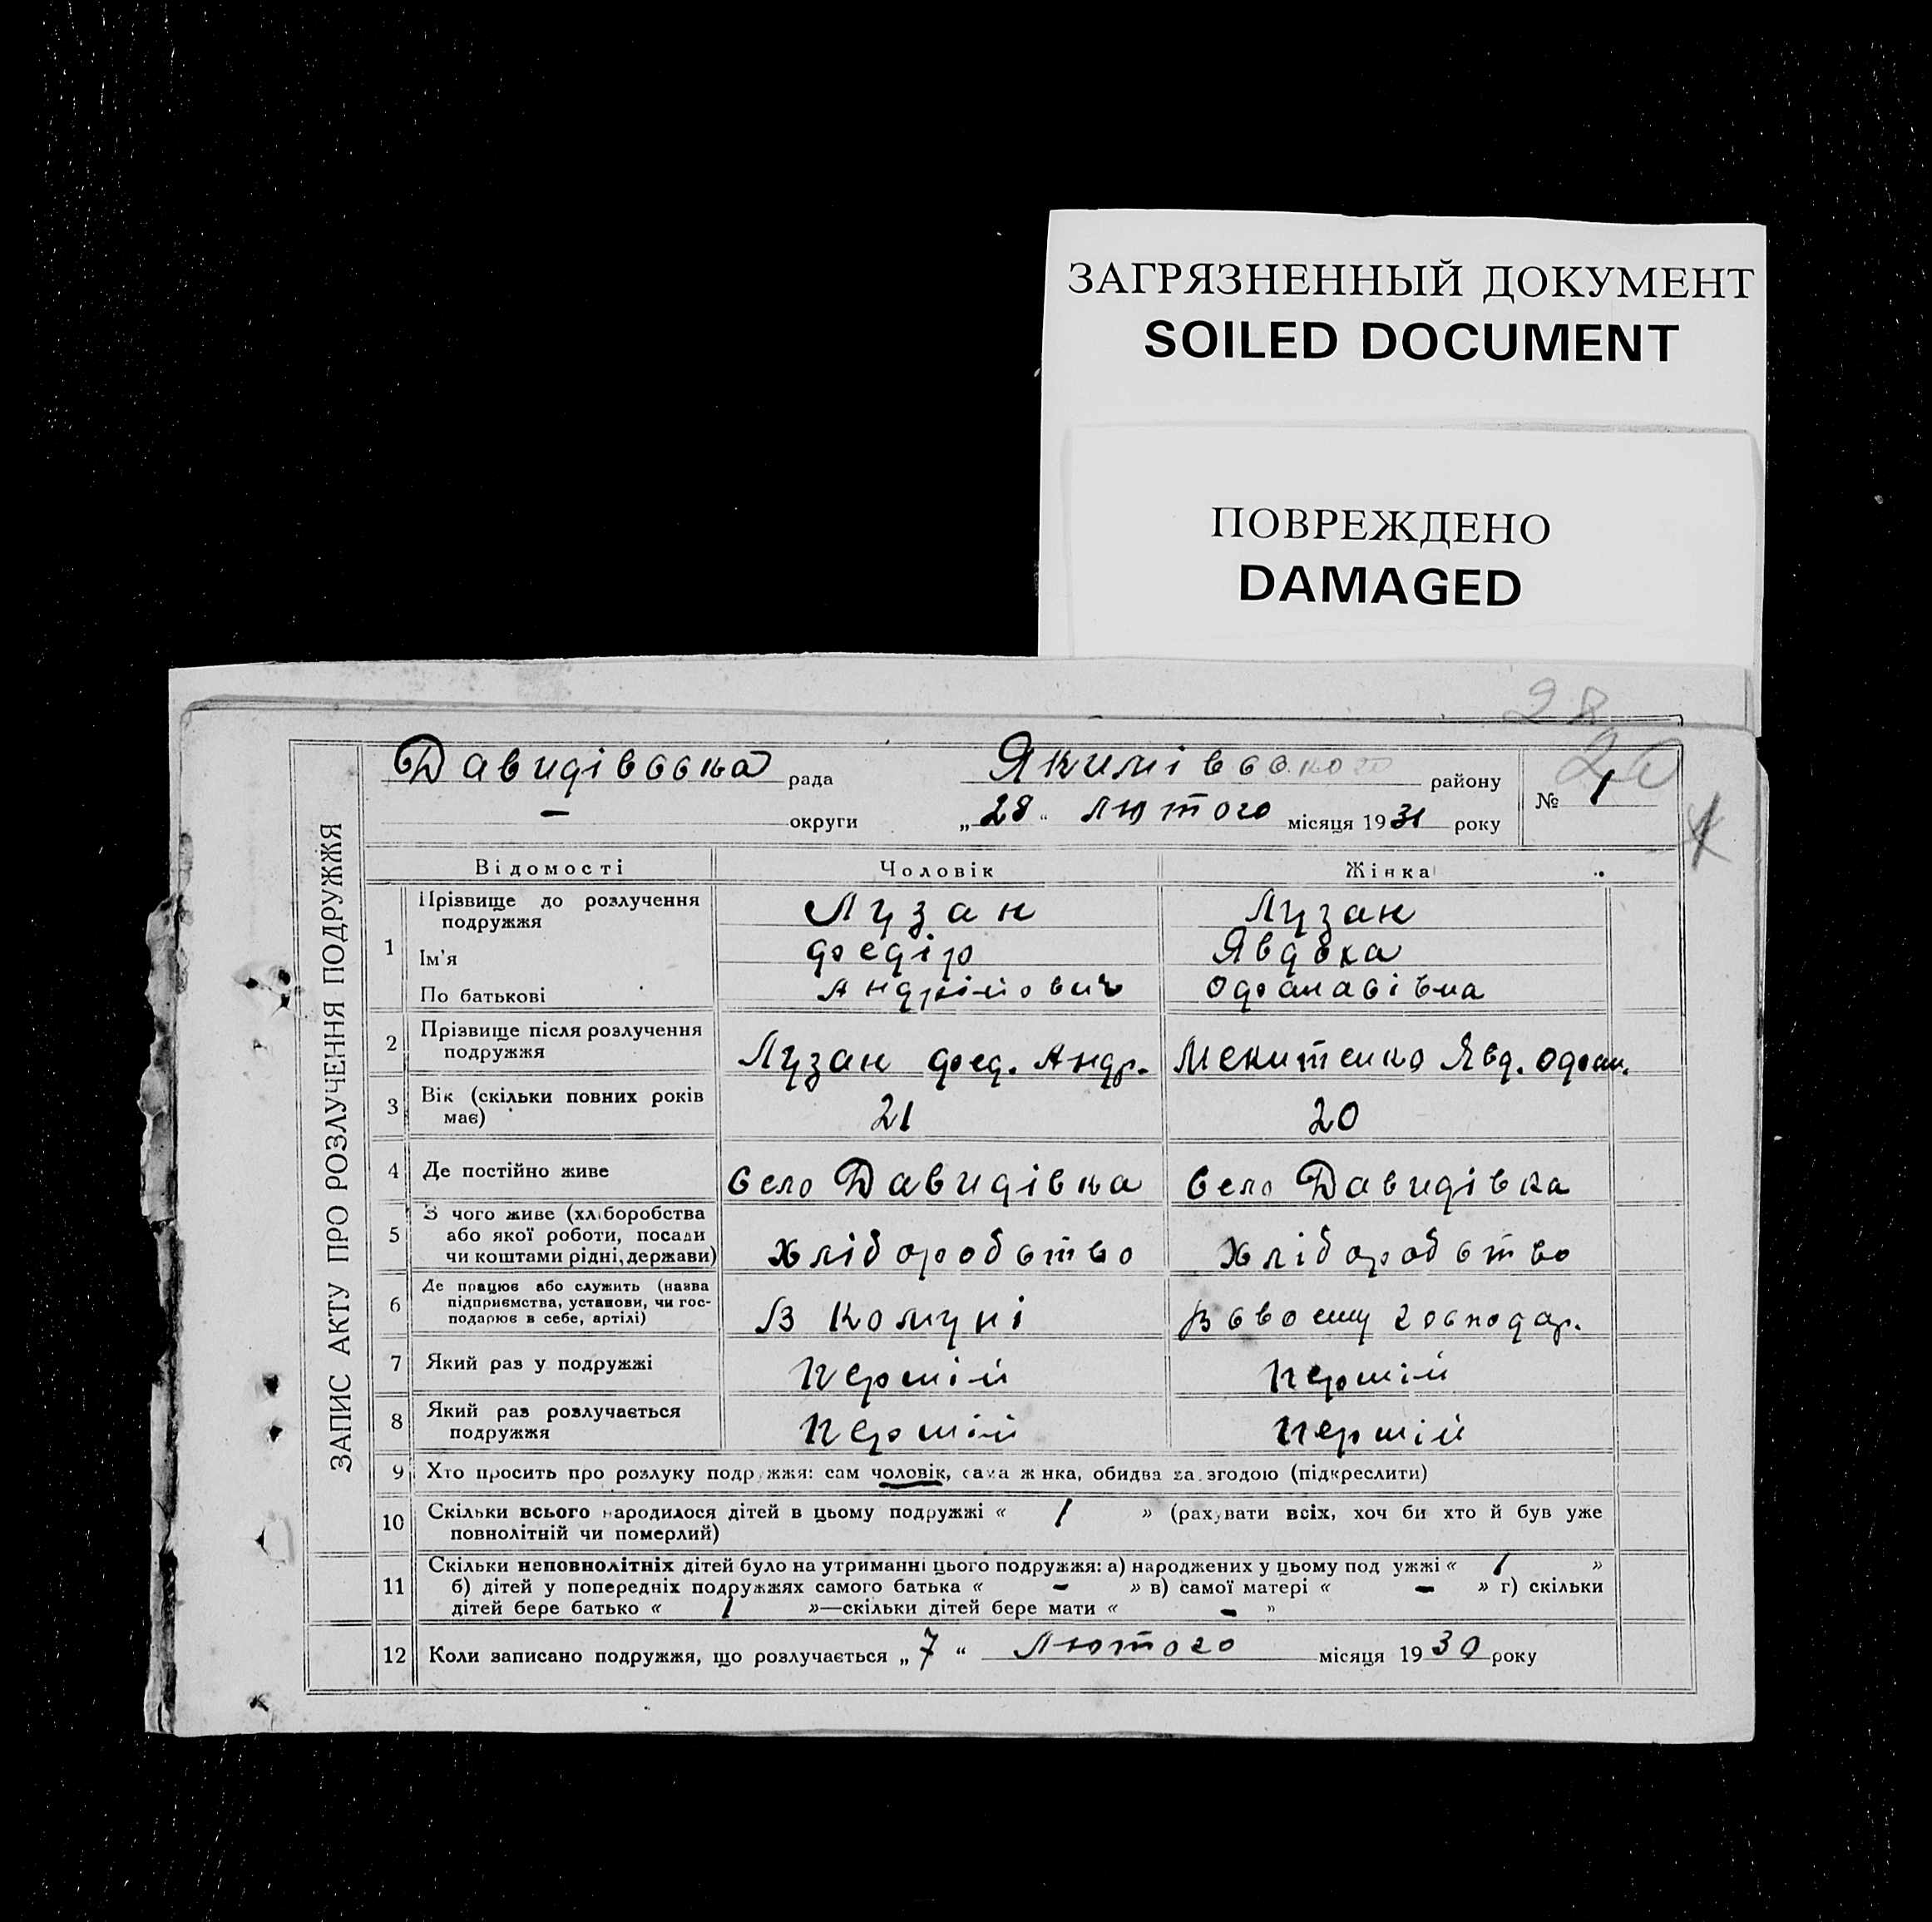 ЗАГРЯЗНЕННЫЙ ДОКУМЕНТ
SOILED DOCUMENT
ПОВРЕЖДЕНО
DAMAGED
28
20
ЗАПИС АКТУ ПРО РОЗЛУЧЕННЯ ПОДРУЖЖЯ
Давидівська рада Якимівського району № 1
— округи „28“ лютого місяця 1931 року
Відомості Чоловік Жінка
1 Прізвище до розлучення подружжя Лузан Лузан
Ім'я Федір Явдоха
По батькові Андрійович Офанасівна
2 Прізвище після розлучення подружжя Лузан Фед. Андр. Микитенко Явд. Офан.
3 Вік (скільки повних років має) 21 20
4 Де постійно живе село Давидівка село Давидівка
5 З чого живе (хліборобства
або якої роботи, посади
чи коштами рідні, держави) Хліборобство Хліборобство
6 Де працює або служить (назва
підприємства, установи, чи гос-
подарює в себе, артілі) В Комуні В своєму господар.
7 Який раз у подружжі Першій Першій
8 Який раз розлучається
подружжя Першій Першій
9 Хто просить про розлуку подружжя: сам чоловік, сама жінка, обидва за згодою (підкреслити)
10 Скільки всього народилося дітей в цьому подружжі « 1 » (рахувати всіх, хоч би хто й був уже
повнолітній чи померлий)
11 Скільки неповнолітніх дітей було на утриманні цього подружжя: а) народжених у цьому подружжі « 1 »
б) дітей у попередніх подружжях самого батька « – » в) самої матері « – » г) скільки
дітей бере батько « 1 »—скільки дітей бере мати « – »
12 Коли записано подружжя, що розлучається „7“ Лютого місяця 1930 року